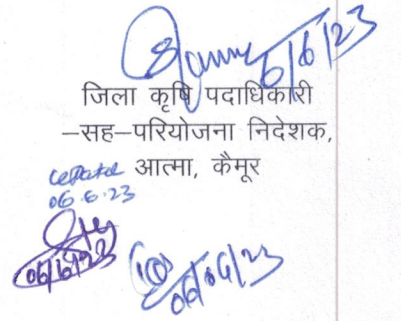 6/6/23
जिला कृषि पदाधिकारी
–सह–परियोजना निदेशक,
आत्मा, कैमूर
06.6.23
06/6/23
06/06/23